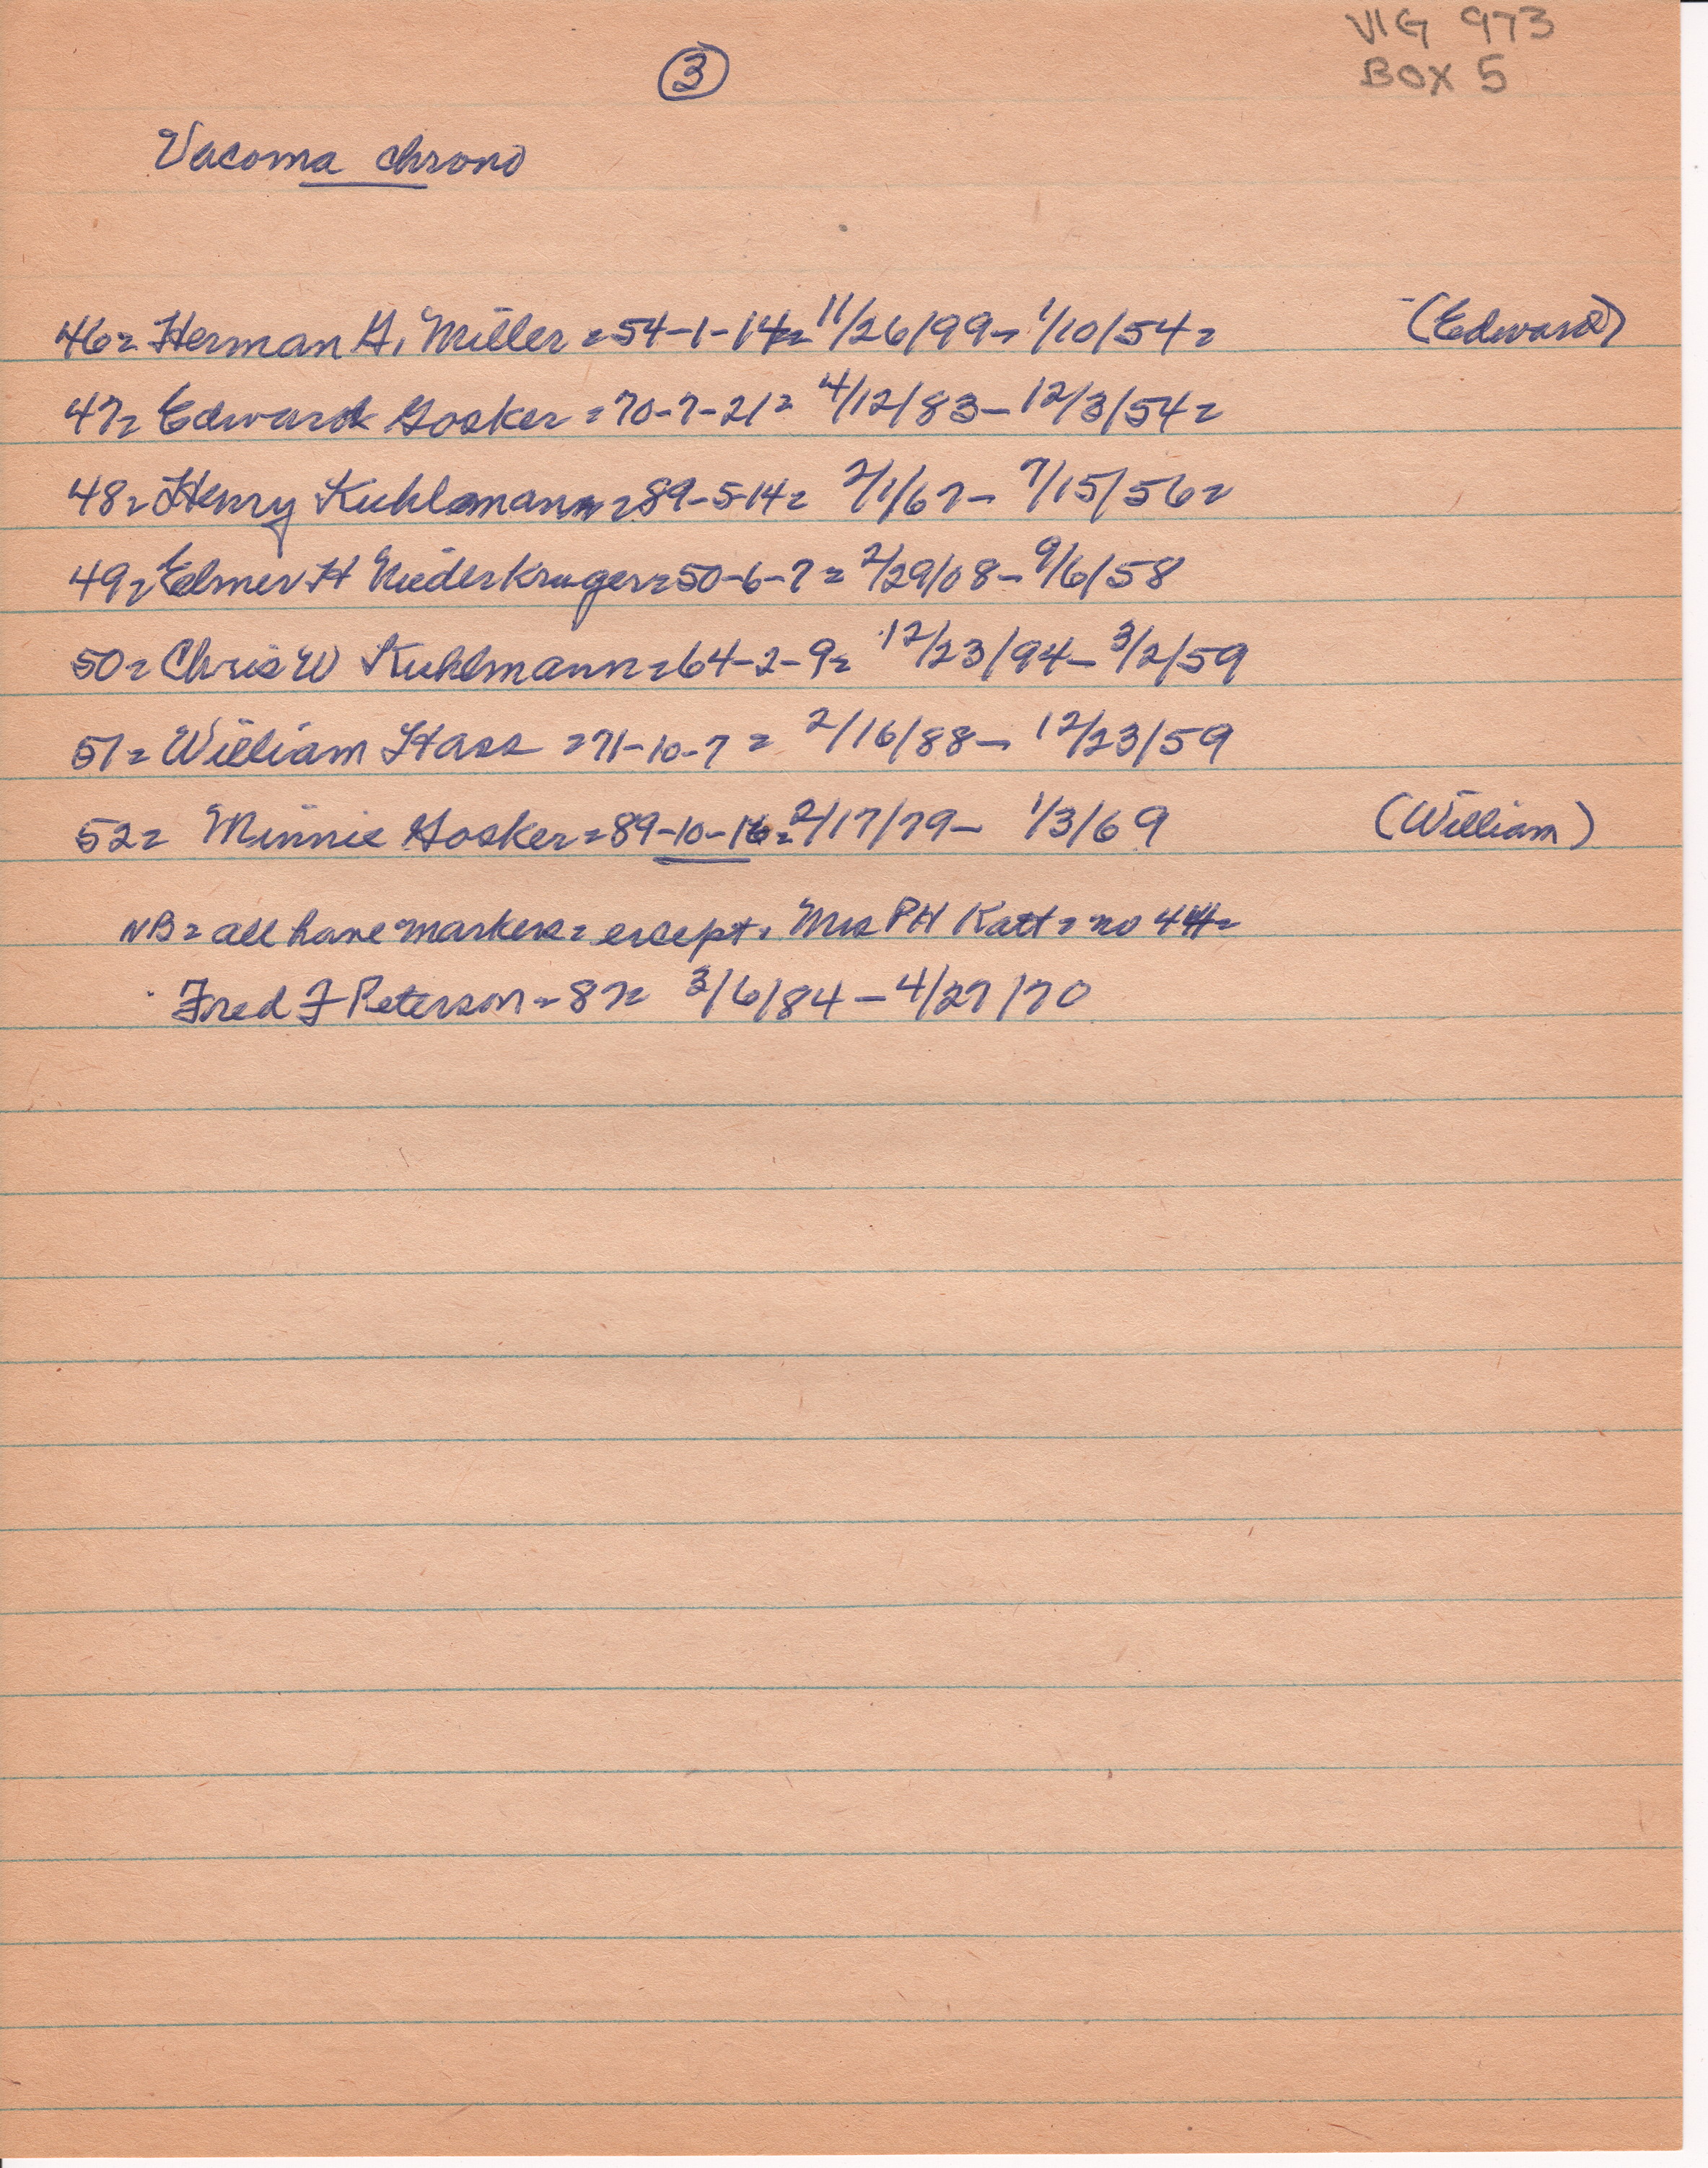 VIG 973
BOX 5
3
Vacoma chrono
46= Herman G. Miller =54-1-14= 11/26/99- 1/10/54= (Edward)
47= Edward Gosker =70-7-21= 4/12/83- 12/3/54=
48= Henry Kuhlmann =89-5-14= 2/1/67- 7/15/56=
49= Elmer H Niederkruger=50-6-7= 2/29/08- 9/6/58
50= Chris W Kuhlmann=64-2-9= 12/23/94- 3/2/59
51= William Hass =71-10-7= 2/16/88- 12/23/59
52= Minnie Gosker=89-10-16=2/17/79- 1/3/69 (William)
NB= all have markers= except. Mrs PH Katt= no 44=
Fred F Peterson- 87= 3/6/84-4/27/70